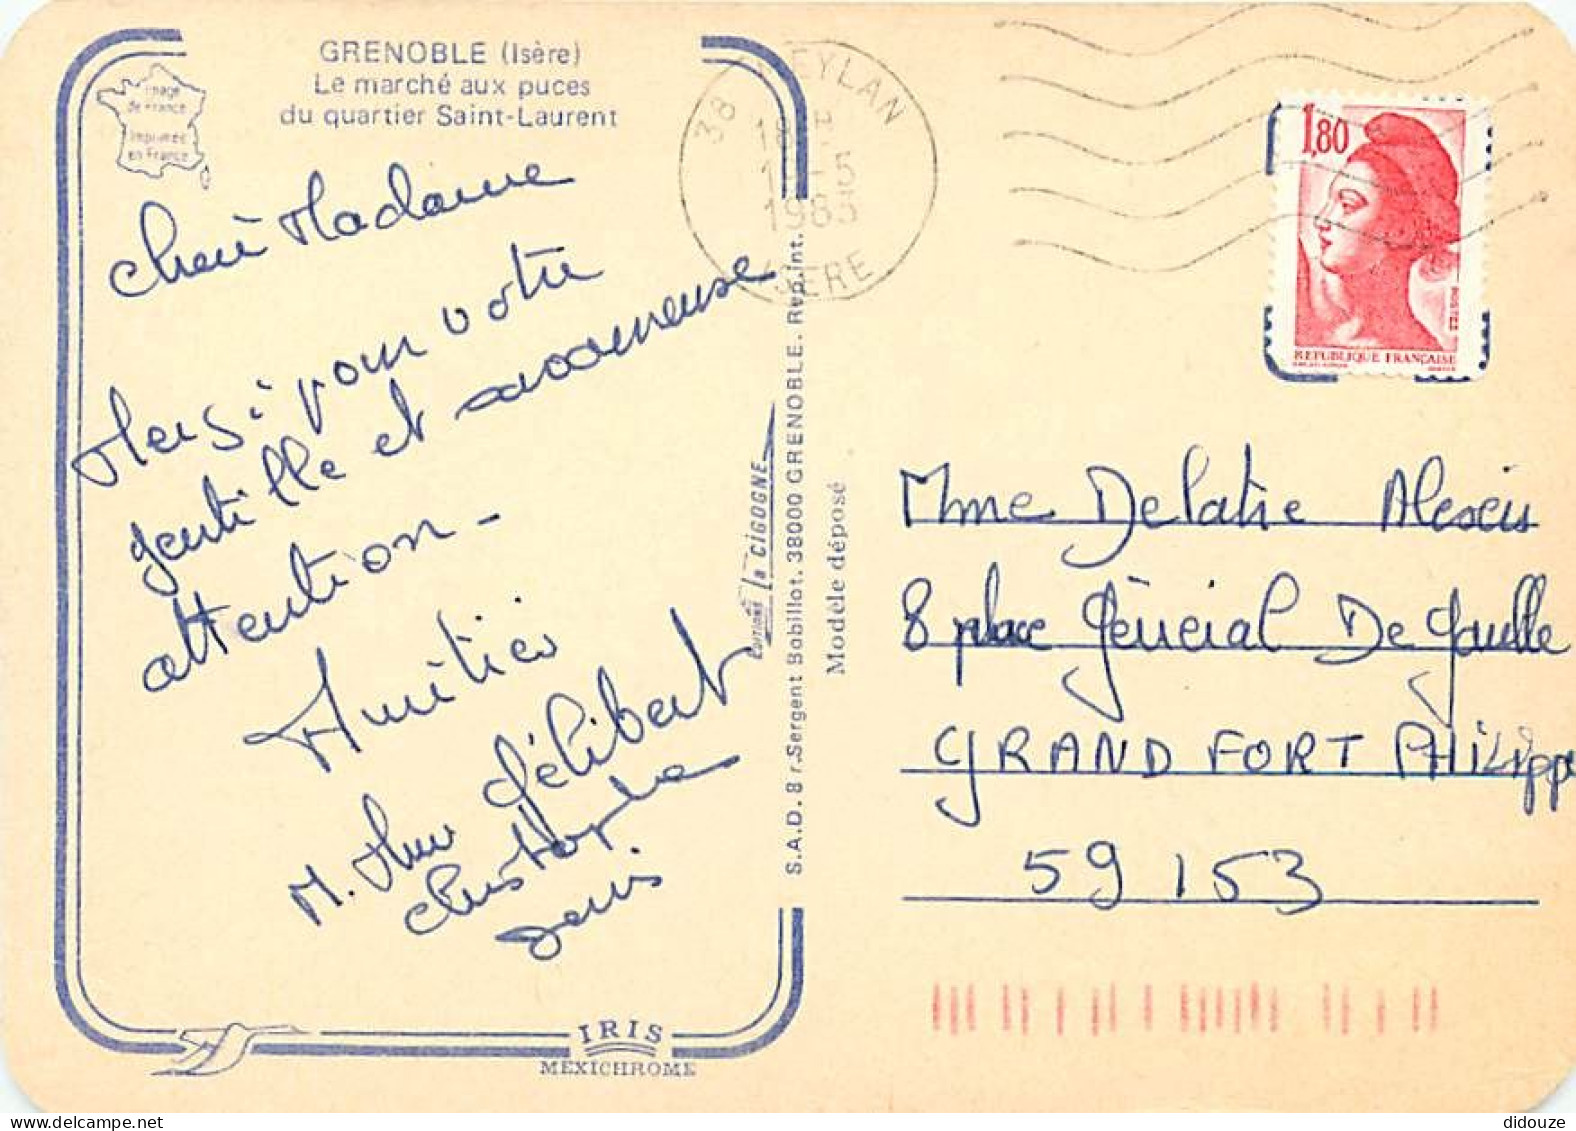 GRENOBLE (Isère)
Le marché aux puces
du quartier Saint-Laurent
Image
de France
Imprimée
en France
Chère Madame
Merçi pour votre
gentille et savoureuse
attention -
Amitiés
M. Mme Gélibert
Christophe
Denis
EDITIONS La CIGOGNE
S.A.D. 8 r. Sergent Bobillot. 38000 GRENOBLE. Rep. int.
Modèle déposé
IRIS
MEXICHROME
38 MEYLAN
18 H
1 -5
1985
ISERE
1,80
POSTES
REPUBLIQUE FRANÇAISE
Mme Delatre Alexis
8 place Général De Gaulle
GRAND FORT PHILippe
59153
didouze
delcampe.net